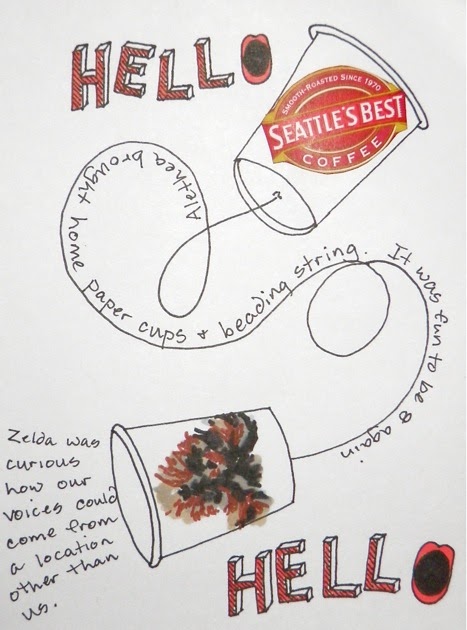 HELLO
SMOOTH-ROASTED SINCE 1970
SEATTLE'S BEST
COFFEE
Alethea brought home paper cups + beading string. It was fun to be 8 again
Zelda was
curious
how our
voices could
come from
a location
other than
us.
HELLO